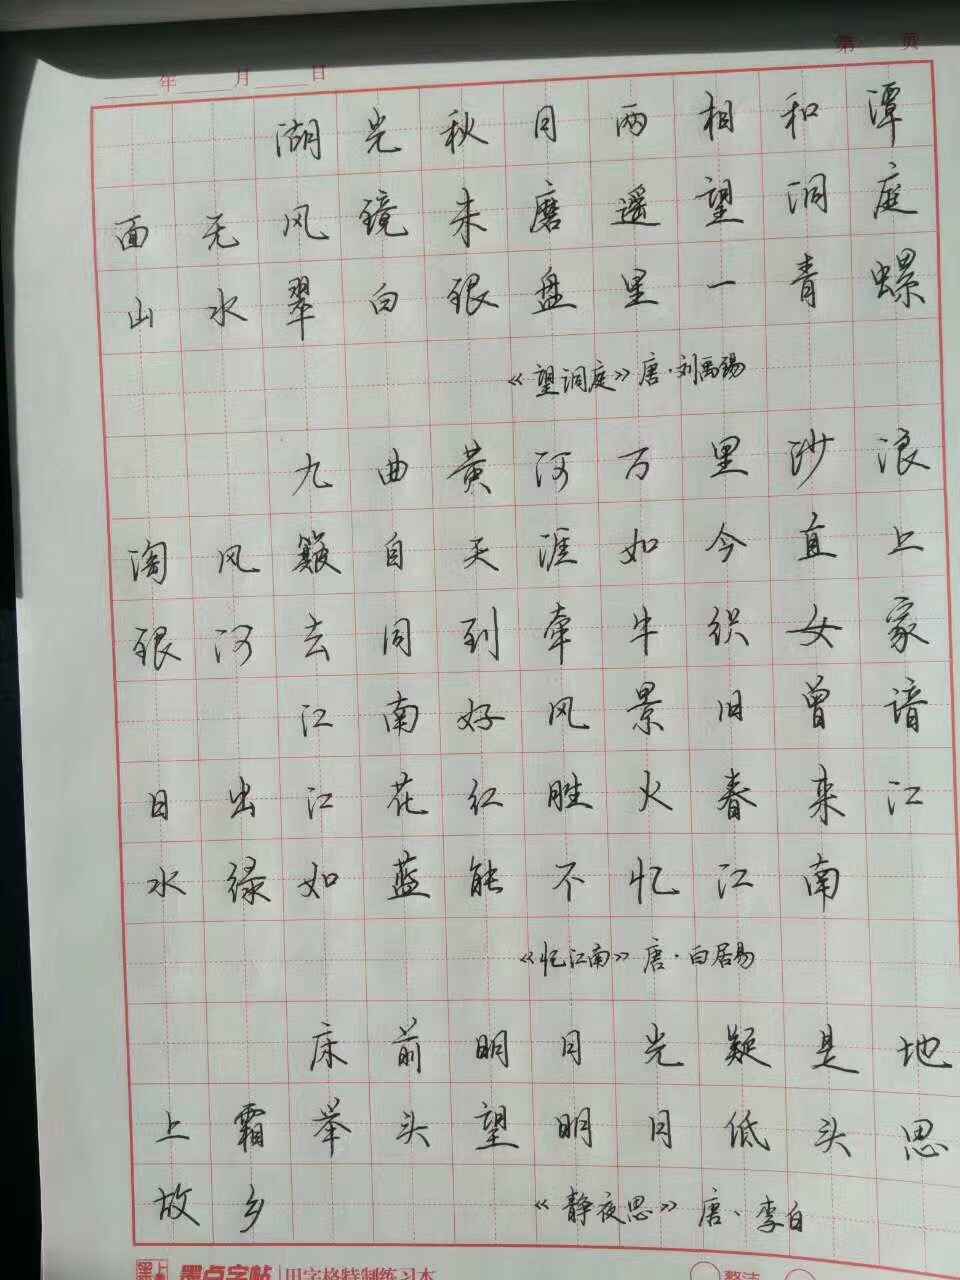 年 月 日
第 页
湖光秋月两相和潭
面无风镜未磨遥望洞庭
山水翠白银盘里一青螺
《望洞庭》唐·刘禹锡
九曲黄河万里沙浪
淘风簸自天涯如今直上
银河去同到牵牛织女家
江南好风景旧曾谙
日出江花红胜火春来江
水绿如蓝能不忆江南
《忆江南》唐·白居易
床前明月光疑是地
上霜举头望明月低头思
故乡
《静夜思》唐·李白
墨点字帖 田字格特制练习本
整洁